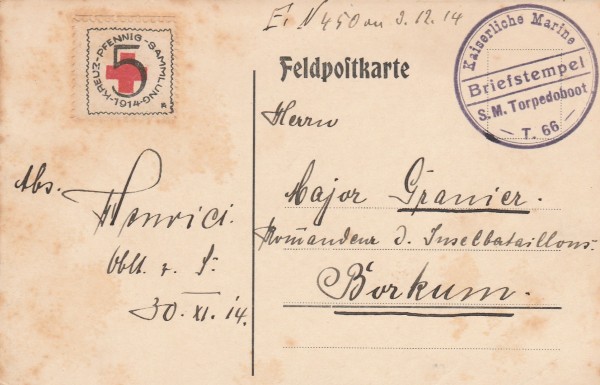 E. N 450 on 3.12.14
KREUZ-PFENNIG-SAMMLUNG-1914-
5
Feldpostkarte
Kaiserliche Marine
Briefstempel
S. M. Torpedoboot
— T. 66 —
Herrn
Major Granier.
Komandeur d. Inselbataillons.
Borkum.
Abs. Henrici.
Oblt. z. S.
30. XI. 14.